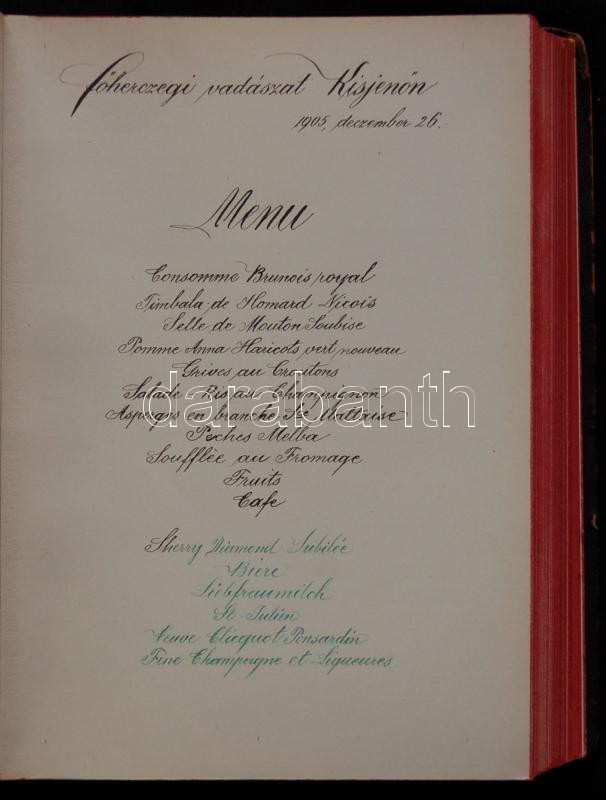 főherczegi vadászat Kisjenőn
1905, deczember 26.
Menu
Consomme Brunois royal
Timbala de Homard Nicois
Selle de Mouton Soubise
Pomme Anna Haricots vert nouveau
Grives au Croutons
Salade Ris au Champignon
Asperges en branche Sce Maltaise
Peches Melba
Soufflèe au Fromage
Fruits
Cafe
Sherry Diamond Jubilée
Biere
Liebfraumilch
St. Julien
Veuve Clicquot Ponsardin
Fine Champagne et Liqueures
darabanth